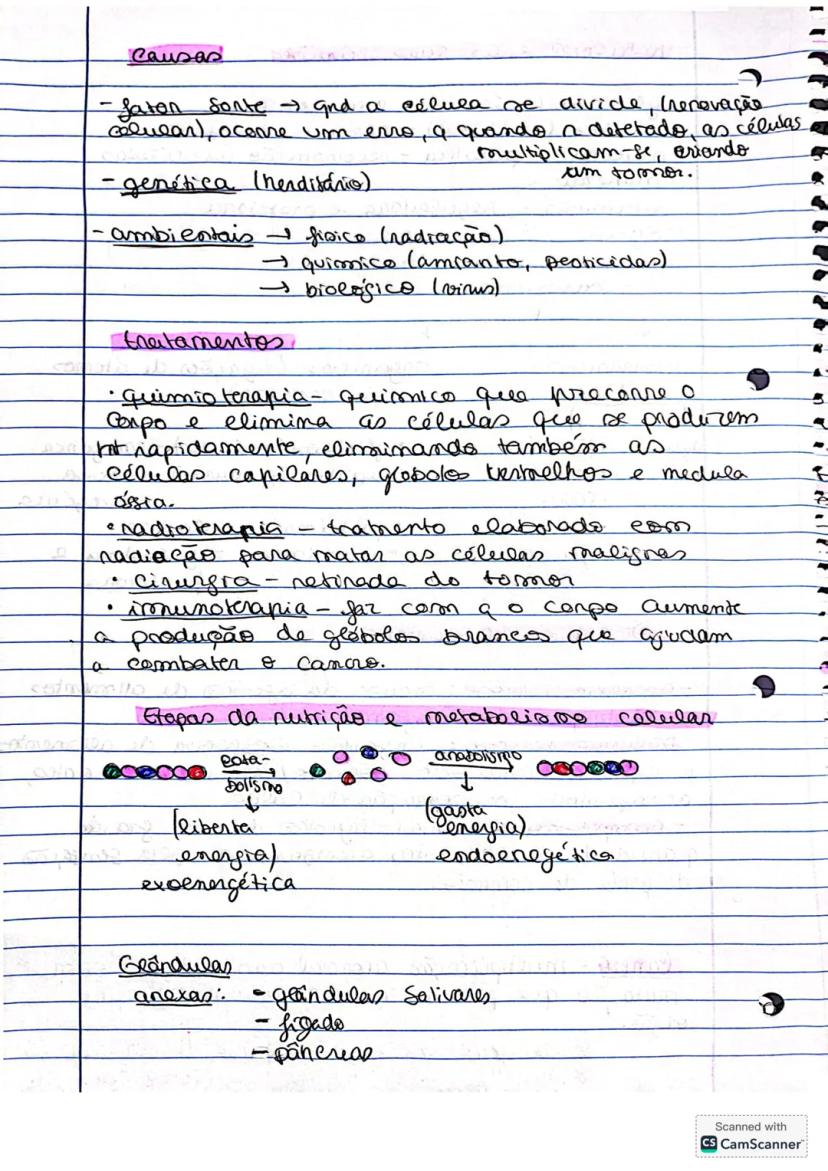 Causas
- fator sorte → qnd a célula se divide, (renovação
celular), ocorre um erro, q quando n detetado, as células
multiplicam-se, criando
um tomor.
- genética (herditário)
- ambientais → fisico (radiação)
→ quimico (amianto, pesticidas)
→ biológico (virus)
tratamentos
· quimioterapia - quimico que precorre o
corpo e elimina as células que se produzem
mt rapidamente, eliminando também as
células capilares, globolos vermelhos e medula
óssea.
· radioterapia - tratmento elaborado com
radiação para matar as células malignas
· cirurgia - retirada do tomor
· imunoterapia - faz com q o corpo aumente
a produção de glóbolos brancos que ajudam
a combater o cancro.
Etapas da nutrição e metabolismo celular
cata-
bolismo
anabolismo
(liberta
energia)
exoenergética
(gasta
energia)
endoenegética
Glândulas
anexas: - glândulas salivares
- fígado
- pâncreas
Scanned with
CS CamScanner